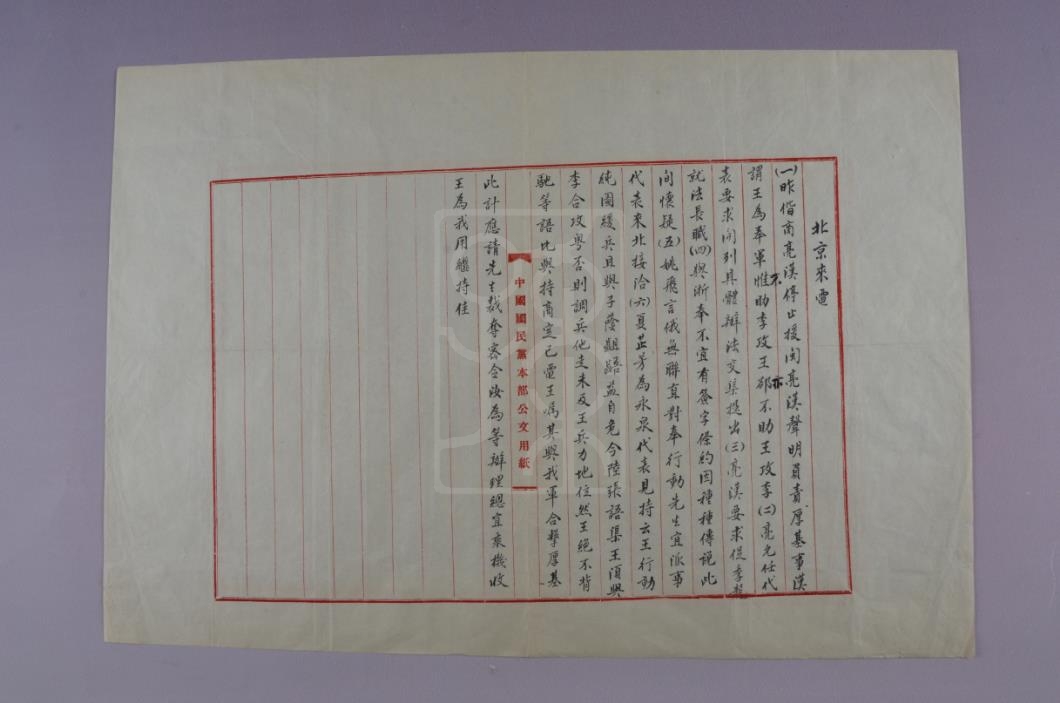 北京來電
(一)昨偕商亮漢停止援閩亮漢聲明負責厚基事漢
謂王為奉軍惟不助李攻王鄒亦不助王攻李(二)亮允任代
表要求開列具體辦法交渠提出(三)亮漢要求促季龍
就法長職(四)與浙奉不宜有簽字條約因種種傳說此
間懷疑(五)姚飛言俄無聯直對奉行動先生宜派專
代表來北接洽(六)夏芷芳為永泉代表見持云王行動
純圖緩兵且與子蔭齟齬益自危今陸張語渠王須與
李合攻粵否則調兵他走未及王兵力地位然王絕不背
馳等語比與持商定已電王囑其與我軍合擊厚基
此計應請先生裁奪密令汝為等辦理總宜乘機收
王為我用繼持佳
中國國民黨本部公文用紙